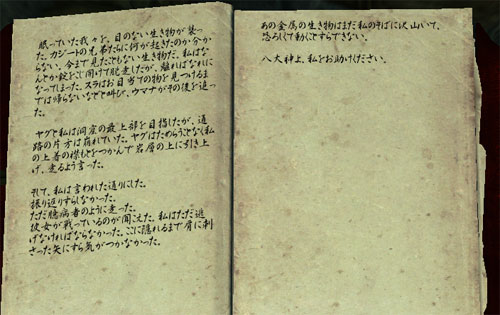 眠っていた我々を、目のない生き物が襲っ
た。カジートの兄弟たちに何が起きたのか分か
らない。今まで見たこともない生き物だ。私はな
んとか錠をこじ開けて脱走したが、離ればなれに
なってしまった。スラはお目当ての物を見つけるま
では帰らないなどと叫び、ウマナがその後を追っ
た。
ヤグと私は洞窟の最上部を目指したが、通
路の片方は崩れていた。ヤグはためらうことなく私
の上着の襟もとをつかんで岩層の上に引き上
げ、走るよう言った。
そして、私は言われた通りにした。
振り返りすらしなかった。
ただ臆病者のように走った。
彼女が戦っているのが聞こえた。私はただ逃
げなければならなかった。ここに隠れるまで肩に刺
さった矢にすら気がつかなかった。
あの金属の生き物はまだ私のそばに沢山いて、
恐ろしくて動くことすらできない。
八大神よ、私をお助けください。